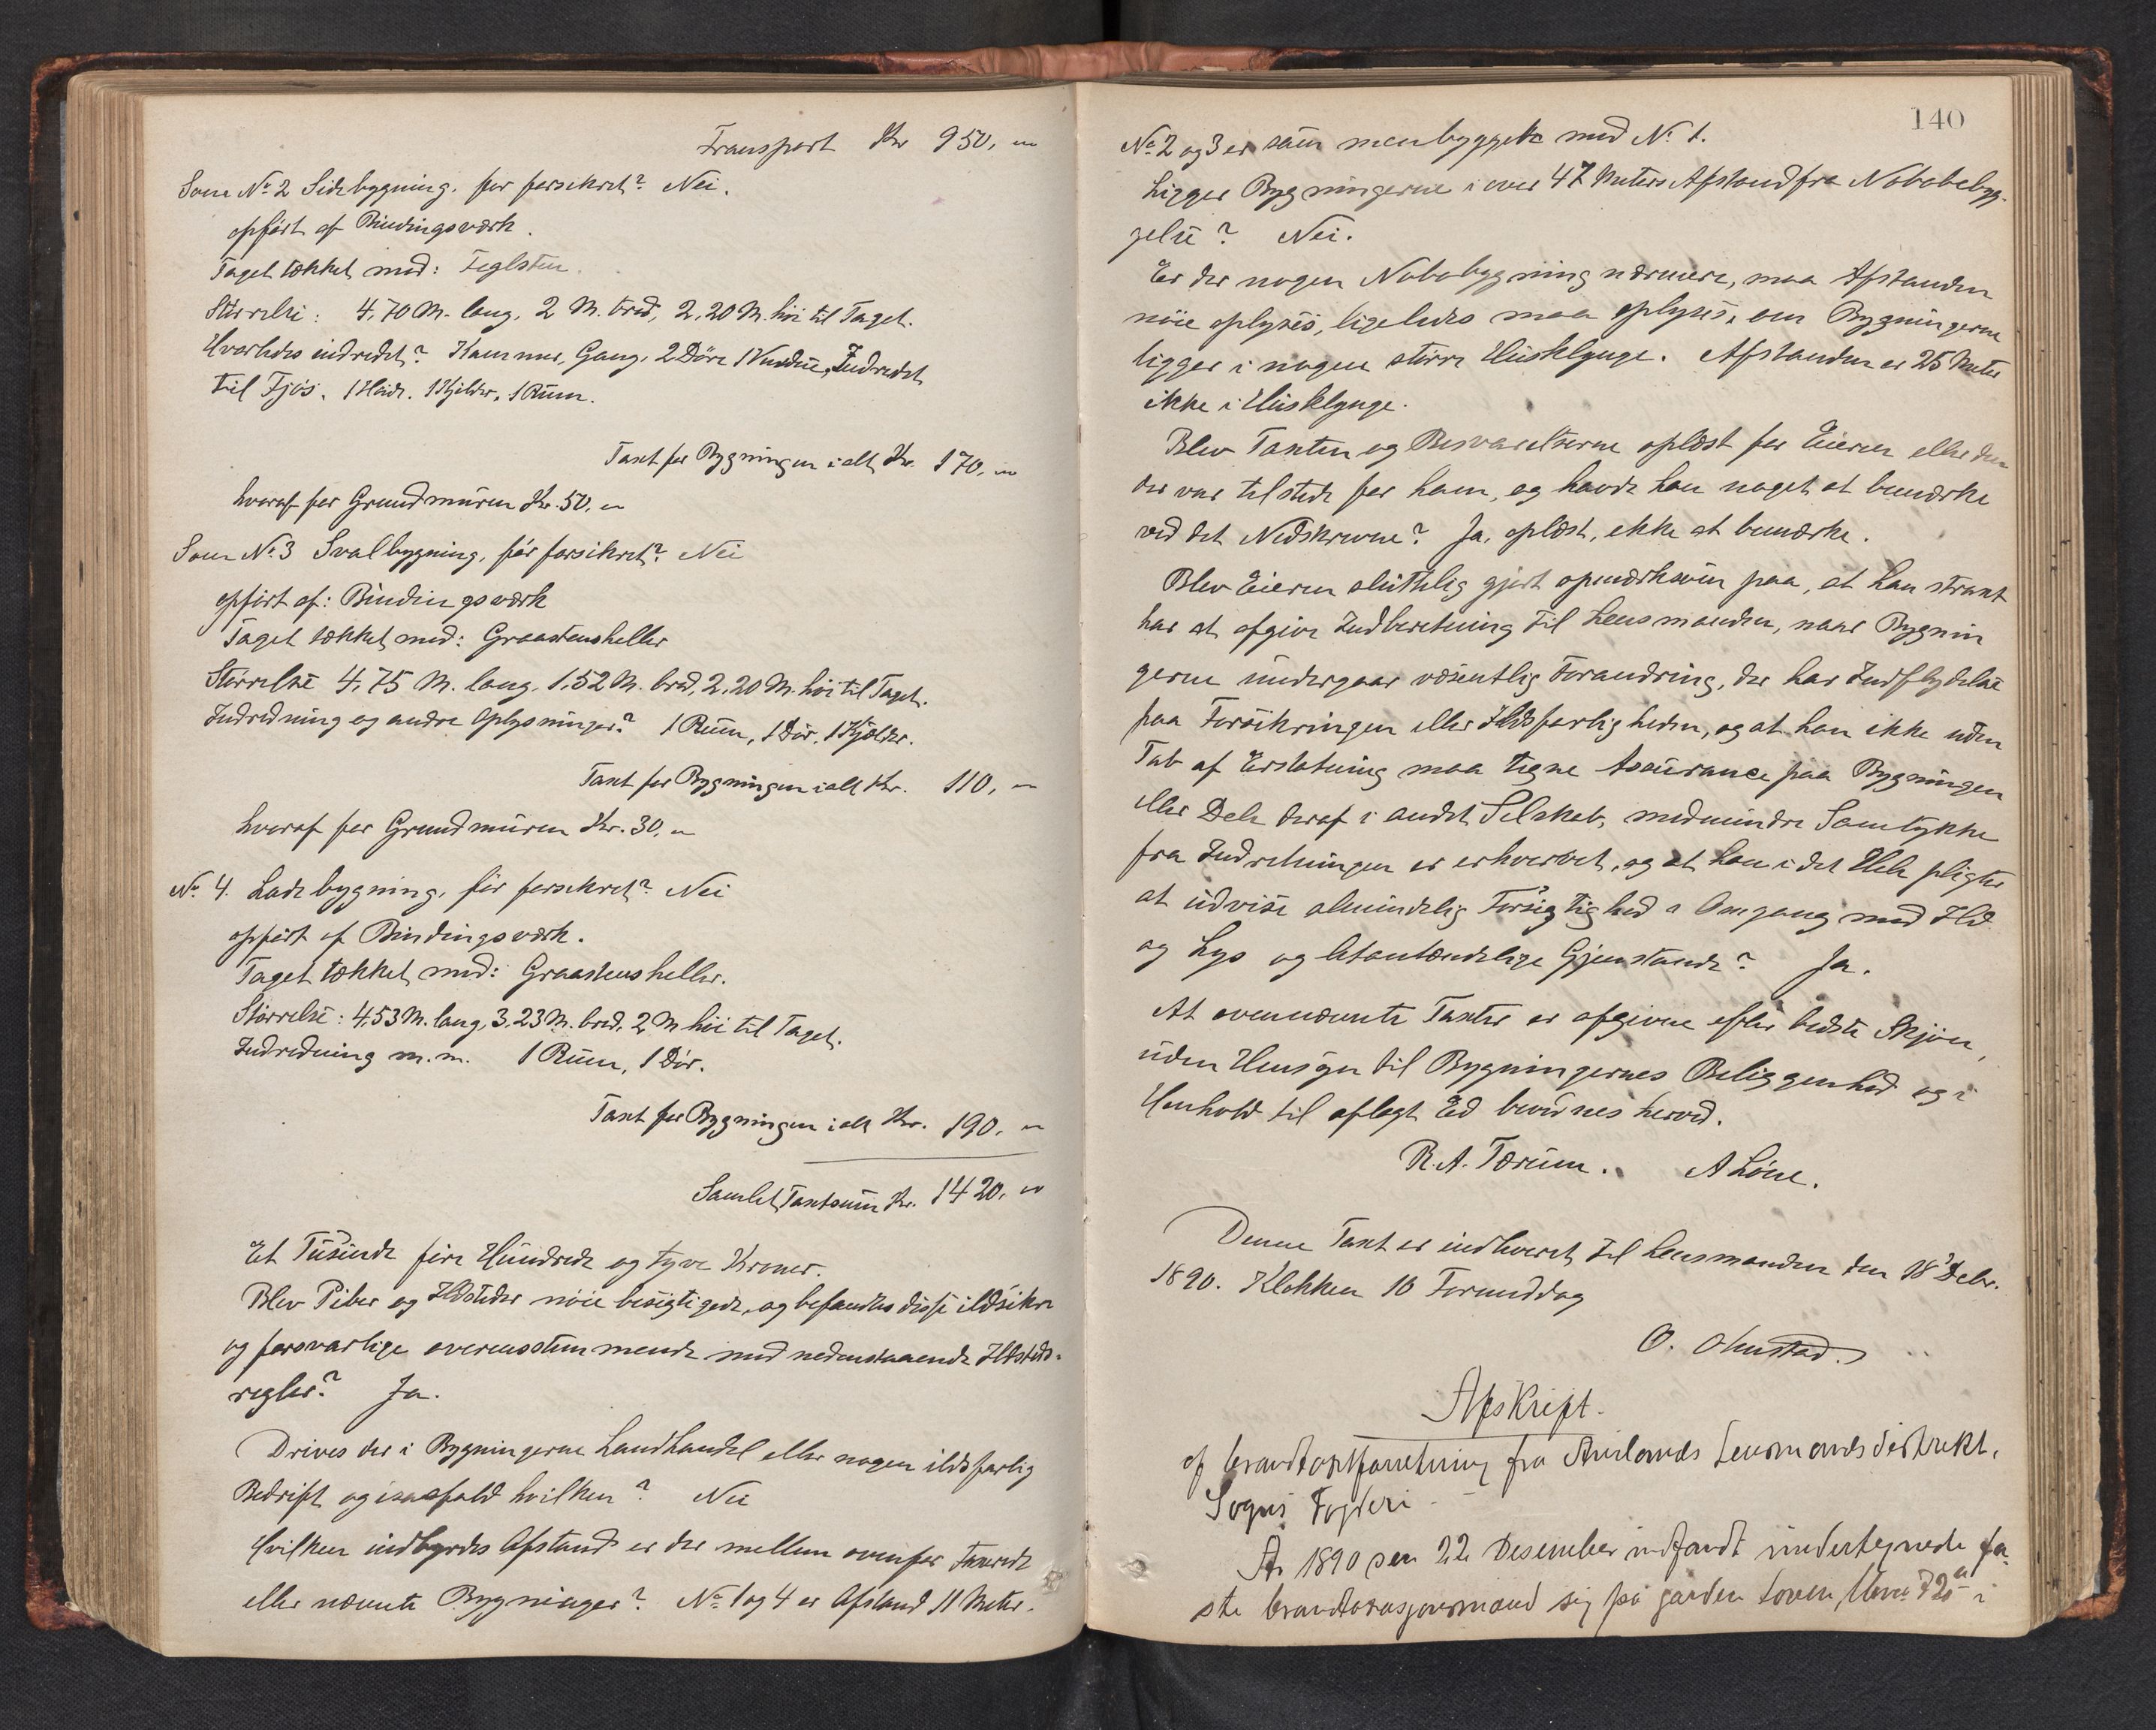 Transport Kr 950, "
Som No 2 Sidebygning, før forsikret? Nei.
opført af Bindingsværk.
Taget tækket med: Teglsten.
Størrelse: 4,70 M. lang, 2 M. bred, 2,20 M. høi til Taget.
Hvorledes indredet? Kammer, Gang, 2 Döre 1 Vindue, Indredet
til Fjøs. 1 Kjelder, 1 Rum.
Taxt for Bygningen i alt Kr. 170, "
hvoraf for Grundmuren Kr. 50, "
Som No 3 Svalbygning, før forsikret? Nei
opført af: Bindingsværk
Taget tækket med: Graastensheller
Størrelse 4,75 M. lang, 1,52 M. bred, 2,20 M. høi til Taget.
Indredning og andre Oplysninger? 1 Rum, 1 Dør, 1 Kjælder.
Taxt for Bygningen i alt Kr. 110, "
hvoraf for Grundmuren Kr. 30, "
No 4. Ladebygning, før forsikret? Nei
opført af Bindingsværk.
Taget tækket med: Graastensheller.
Størrelse: 4,53 M. lang, 3,23 M. bred, 2 M høi til Taget.
Indredning m. m. 1 Rum, 1 Dør.
Taxt for Bygningen i alt Kr. 190, "
Samlet Taxtsum Kr. 1420, "
Et Tusinde fire Hundrede og tyve Kroner.
Blev Piber og Ildsteder nøie besigtigede, og befandtes disse ildsikre
og forsvarlige overensstemmende med nedenstaaende Ildsteds-
regler? Ja.
Drives der i Bygningerne Landhandel eller nogen ildsfarlig
Bedrift og isaafald hvilken? Nei
Hvilken indbyrdes Afstand er der mellem ovenfor taxerede
eller nævnte Bygninger? No 1 og 4 er Afstand 11 Meter.
140
No 2 og 3 er sammenbyggede med No 1.
Ligger Bygningerne i over 47 Meters Afstand fra Nabobebyg-
gelse? Nei.
Er der nogen Nabobygning nærmere, maa Afstanden
nøie oplyses, ligeledes maa oplyses, om Bygningerne
ligger i nogen større Husklynge. Afstanden er 25 Meter
ikke i Husklynge.
Blev Taxten og Besvarelserne oplæst for Eieren eller den
der var tilstede for ham, og havde han noget at bemærke
ved det Nedskrevne? Ja, oplæst, ikke at bemærke.
Blev Eieren sluttelig gjort opmærksom paa, at han strax
har at afgive Indberetning til Lensmanden, naar Bygnin
gerne undergaar væsentlig Forandring, der har Indflydelse
paa Forsikringen eller Ildsfarligheden, og at han ikke uden
Tab af Erstatning maa tegne Assurance paa Bygningen
eller Dele deraf i andet Selskab, medmindre Samtykke
fra Indretningen er erhvervet, og at han i det Hele pligter
at udvise almindelig Forsigtighed i Omgang med Ild
og Lys og letantændelige Gjenstande? Ja.
At ovennævnte Taxter er afgivne efter bedste Skjøn,
uden Hensyn til Bygningernes Beliggenhed og i
Henhold til aflagt Ed bevidnes herved.
R. A. Tærum. A Løne.
Denne Taxt er indleveret til Lensmanden den 18 Debr.
1890. Klokken 10 Formiddag
O. Olmstad.
Afskrift.
af brandtaxtforretning fra Aurlands Lensmandsdistrikt,
Sogns Fogderi.
År 1890 den 22 Desember indfandt undertegnede fa-
ste brandtaxasjonsmænd sig på garden